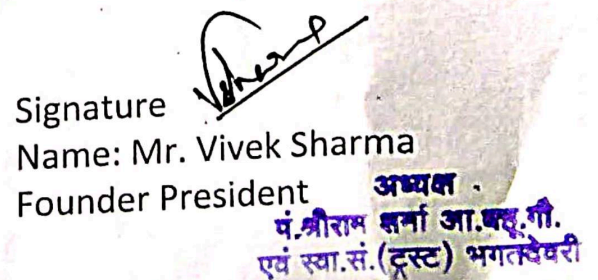 Signature
Name: Mr. Vivek Sharma
Founder President
अध्यक्ष
पं.श्रीराम शर्मा आ.बहू.गौ.
एवं स्वा.सं.(ट्रस्ट) भगतदेवरी